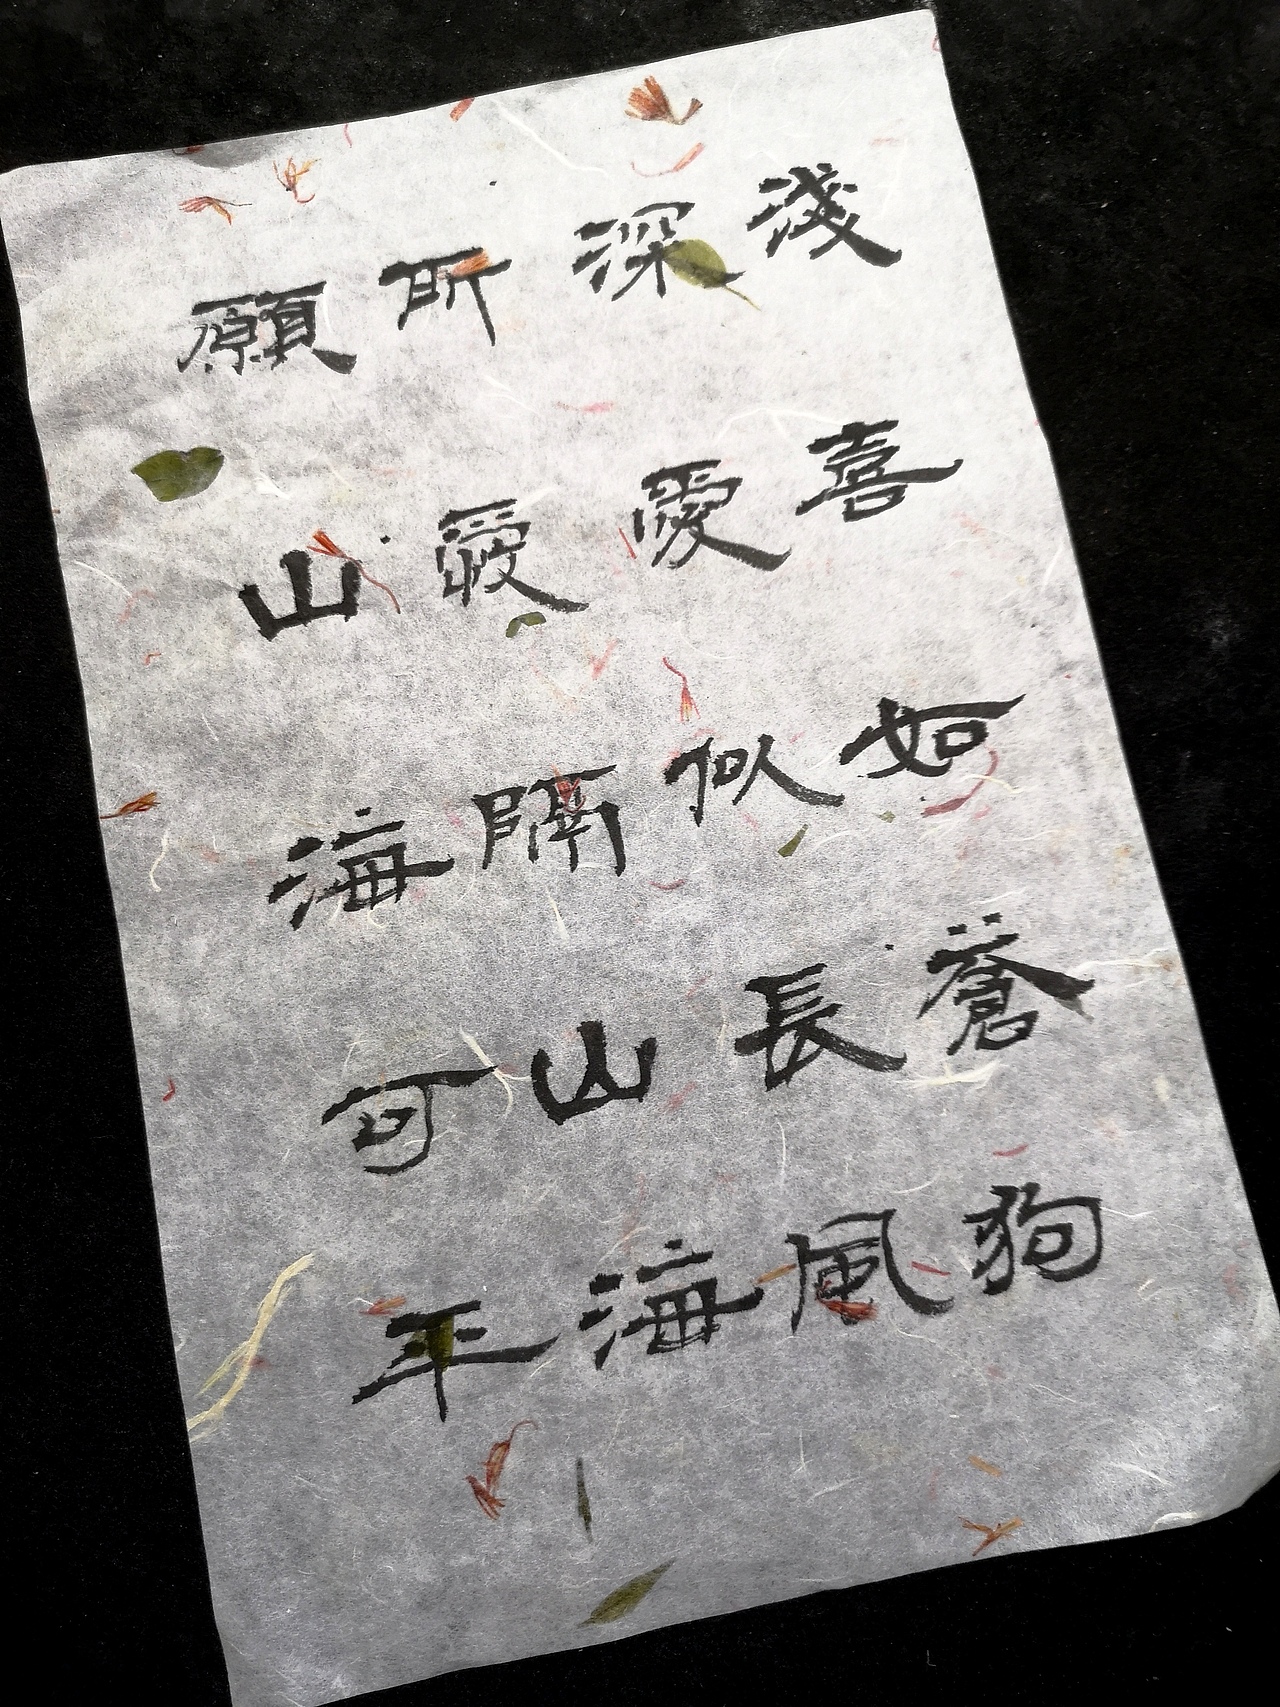 淺喜如蒼狗
深愛似長風
所愛隔山海
願山海可平